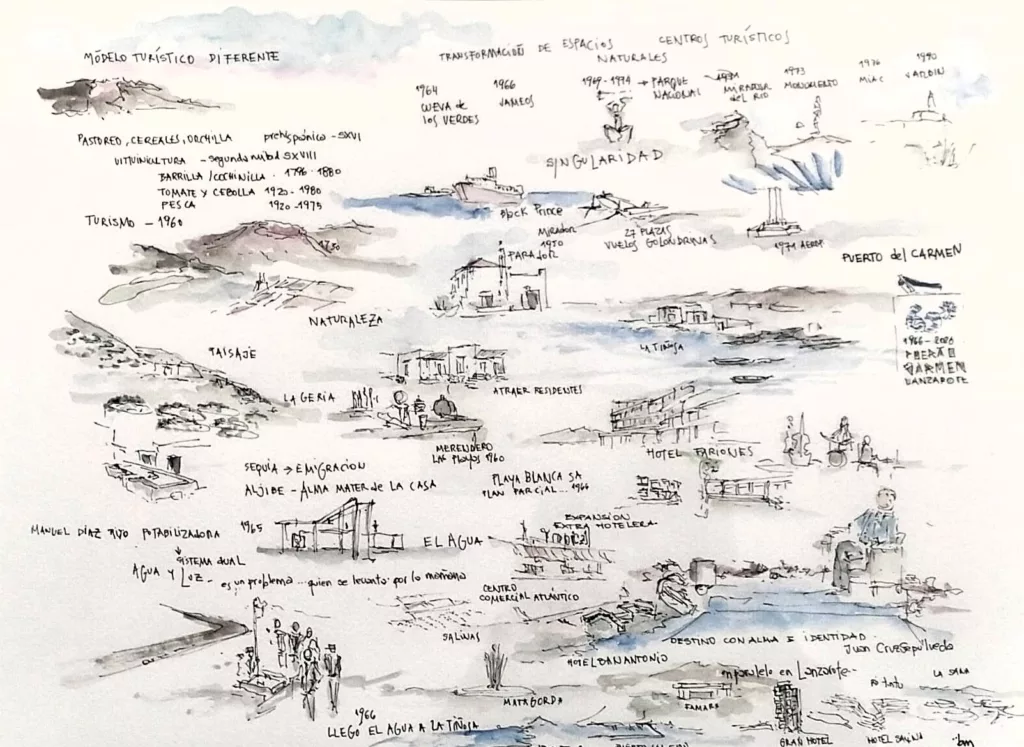 MODELO TURÍSTICO DIFERENTE
TRANSFORMACIÓN DE ESPACIOS NATURALES
CENTROS TURÍSTICOS
1964
CUEVA de los VERDES
1966
JAMEOS
1969-1974 → PARQUE NACIONAL
MIRADOR del RIO
1973
MONUMENTO
1976
MIAC
1990
JARDIN
SINGULARIDAD
PASTOREO, CEREALES, ORCHILLA prehispánico - SXVI
VITIVINICULTURA - segunda mitad SXVIII
BARRILLA / COCHINILLA. 1796-1880
TOMATE Y CEBOLLA 1920-1980
PESCA 1920-1975
TURISMO - 1960
1730
Black Prince
Mirador
1950
PARADOR
27 PLAZAS
VUELOS GOLONDRINAS
PUERTO del CARMEN
1966-2026
CARMEN
LANZAROTE
NATURALEZA
LA TIÑOSA
PAISAJE
LA GERIA
ATRAER RESIDENTES
MERENDERO
LAS PLAYAS 1960
HOTEL FARIONES
SEQUIA → EMIGRACION
ALJIBE - ALMA MATER de LA CASA
PLAYA BLANCA SA
PLAN PARCIAL... 1966
EXPANSIÓN
EXTRA HOTELERA
MANUEL DÍAZ RIJO POTABILIZADORA 1965
EL AGUA
SISTEMA dUAL
AGUA Y LUZ - es un problema ... quien se levanta por la mañana
CENTRO
COMERCIAL ATLÁNTICO
SALINAS
DESTINO CON ALMA E IDENTIDAD
Juan Cruz Sepulveda
HOTEL SAN ANTONIO
en paralelo en Lanzarote -
MATAGORDA
FAMARA
LA SANTA
GRAN HOTEL
HOTEL SALINA
1966
LLEGÓ EL AGUA A LA TIÑOSA